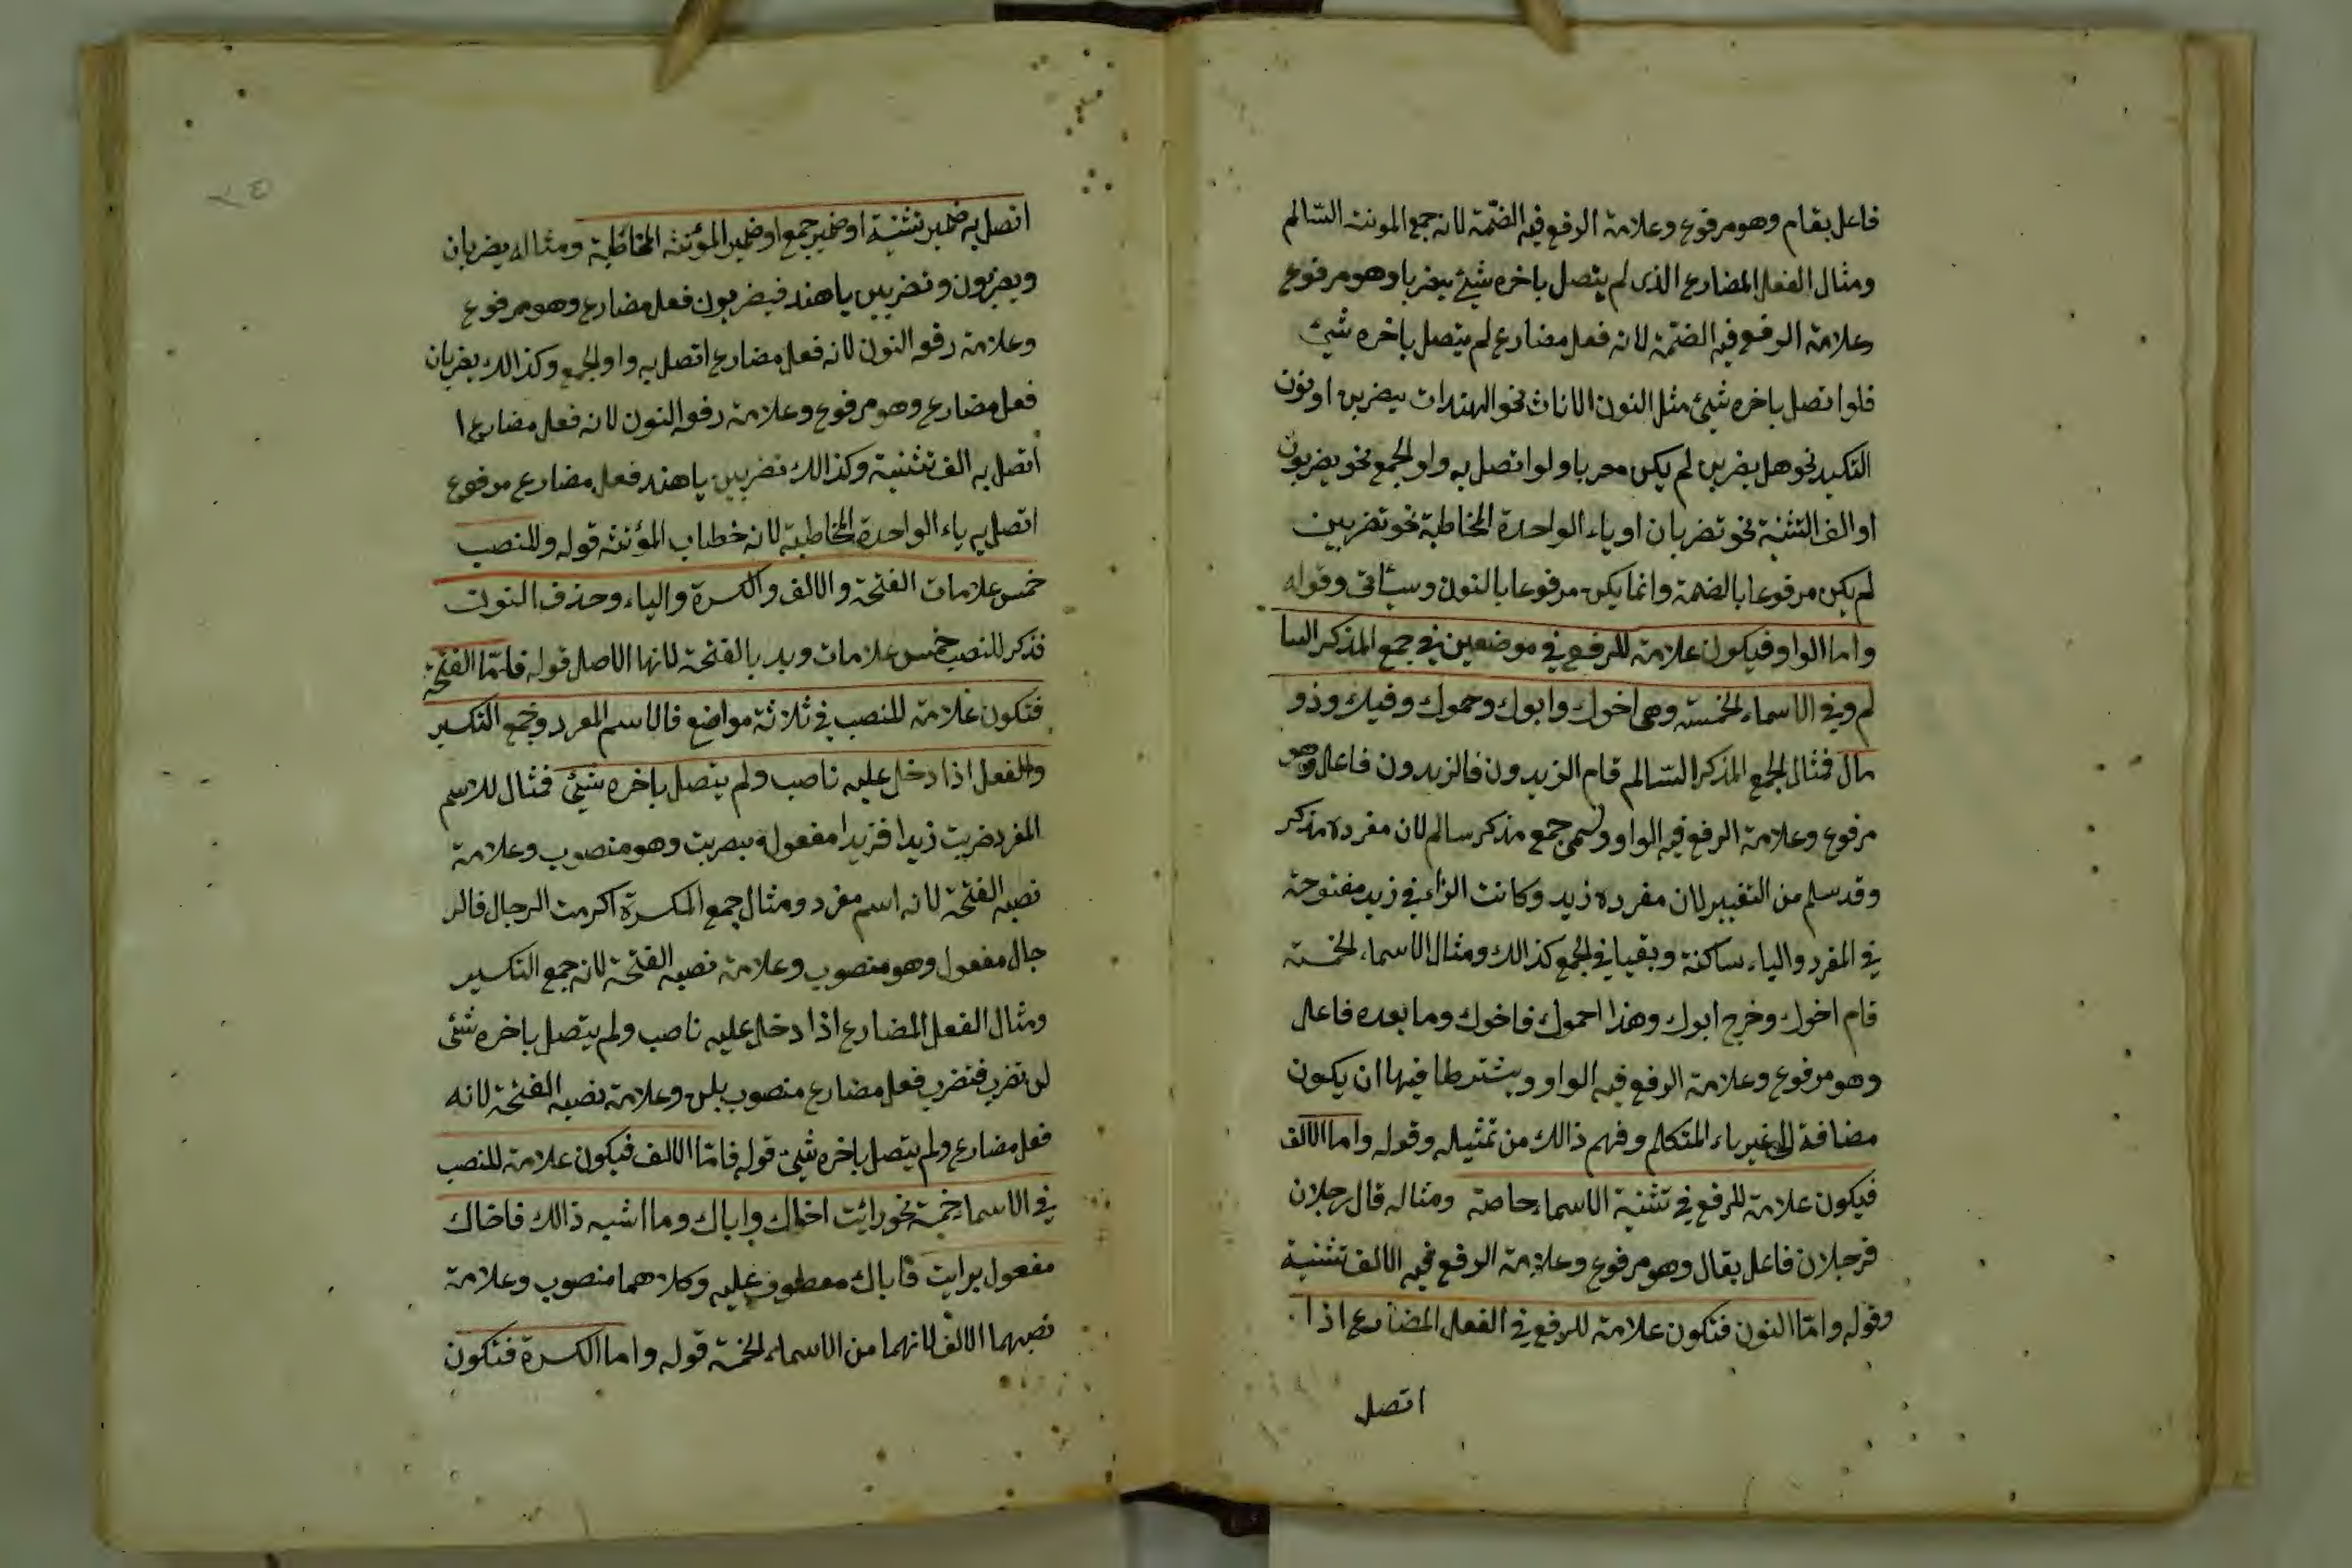 فاعل بقام وهو مرفوع وعلامة الرفع فيه الضمّة لانه جمع المونث السّالم
ومثال الفعل المضارع الذى لم يتصل باخره شيئ يضربا وهو مرفوع
وعلامة الرفع فيه الضمّة لانه فعل مضارع لم يتصل باخره شيئ
فلو اتصل باخره شيئ مثل النون الاناث نحو الهندات يضربن او نون
التكيد نحو هل يضربن لم يكن معربا ولو اتصل به واو الجمع نحو يضربون
او الف التثنية نحو تضربان او ياء الواحدة المخاطبة نحو تضربين
لم يكن مرفوعا بالضمة وانما يكن مرفوعا بالنون وسياتى وقوله
واما الواو فيكون علامة للرفع في موضعين في جمع المذكر السا
لم وفي الاسماء الخمسة وهى اخوك وابوك وحموك وفيك وذو
مال فمثال الجمع المذكر السّالم قام الزيدون فالزيدون فاعل وهو
مرفوع وعلامة الرفع فيه الواو وسمى جمع مذكر سالم لان مفرده مذكر
وقد سلم من التغيير لان مفرده زيد وكانت الزاء في زيد مفتوحة
في المفرد والياء ساكنة وبقيا في الجمع كذالك ومثال الاسماء الخمسة
قام اخوك وخرج ابوك وهذا احموك فاخوك وما بعده فاعل
وهو مرفوع وعلامة الرفع فيه الواو ويشترطا فيها ان يكون
مضافة الى غير ياء المتكلم وفهم ذالك من تمثيله وقوله واما الالف
فيكون علامة للرفع في تثنية الاسماء خاصة ومثاله قال رجلان
فرجلان فاعل بقال وهو مرفوع وعلامة الرفع فيه الالف تثنية
وقوله وامّا النون فتكون علامة للرفع في الفعل المضارع اذا
اتصل
اتصل به ضمير تثنية او ضمير جمع او ضمير المؤنثه المخاطبة ومثاله يضربان
ويضربون وتضربين ياهند فيضربون فعل مضارع وهو مرفوع
وعلامة رفعه النون لانه فعل مضارع اتصل به واو الجمع وكذالك يضربان
فعل مضارع وهو مرفوع وعلامة رفعه النون لانه فعل مضارع ا
اتصل به الف تثنية وكذالك تضربين ياهند فعل مضارع مرفوع
اتصل به ياء الواحدة المخاطبة لانه خطاب المؤنثه قوله وللنصب
خمس علامات الفتحة والالف والكسرة والياء وحذف النون
فذكر للنصب خمس علامات وبدء بالفتحة لانها الاصل قوله فامّا الفتحة
فتكون علامة للنصب في ثلاثة مواضع فالاسم المفرد وجمع التكسير
والفعل اذا دخل عليه ناصب ولم يتصل باخره شيئ فمثال للاسم
المفرد ضربت زيدا فزيدا مفعولة بضربت وهو منصوب وعلامة
نصبه الفتحة لانه اسم مفرد ومثال جمع المكسرة اكرمت الرجال فالر
جال مفعول وهو منصوب وعلامة نصبه الفتحة لانه جمع التكسير
ومثال الفعل المضارع اذا دخل عليه ناصب ولم يتصل باخره شئى
لن تضرب فتضرب فعل مضارع منصوب بلن وعلامة نصبه الفتحة لانه
فعل مضارع ولم يتصل باخره شيئ قوله فامّا الالف فيكون علامة للنصب
في الاسماء خمسة نحو رائت اخاك واباك وما اشبه ذالك فاخاك
مفعول برايت فاباك معطوف عليه وكلاهما منصوب وعلامة
نصبهما الالف لانهما من الاسماء الخمسة قوله واما الكسرة فتكون